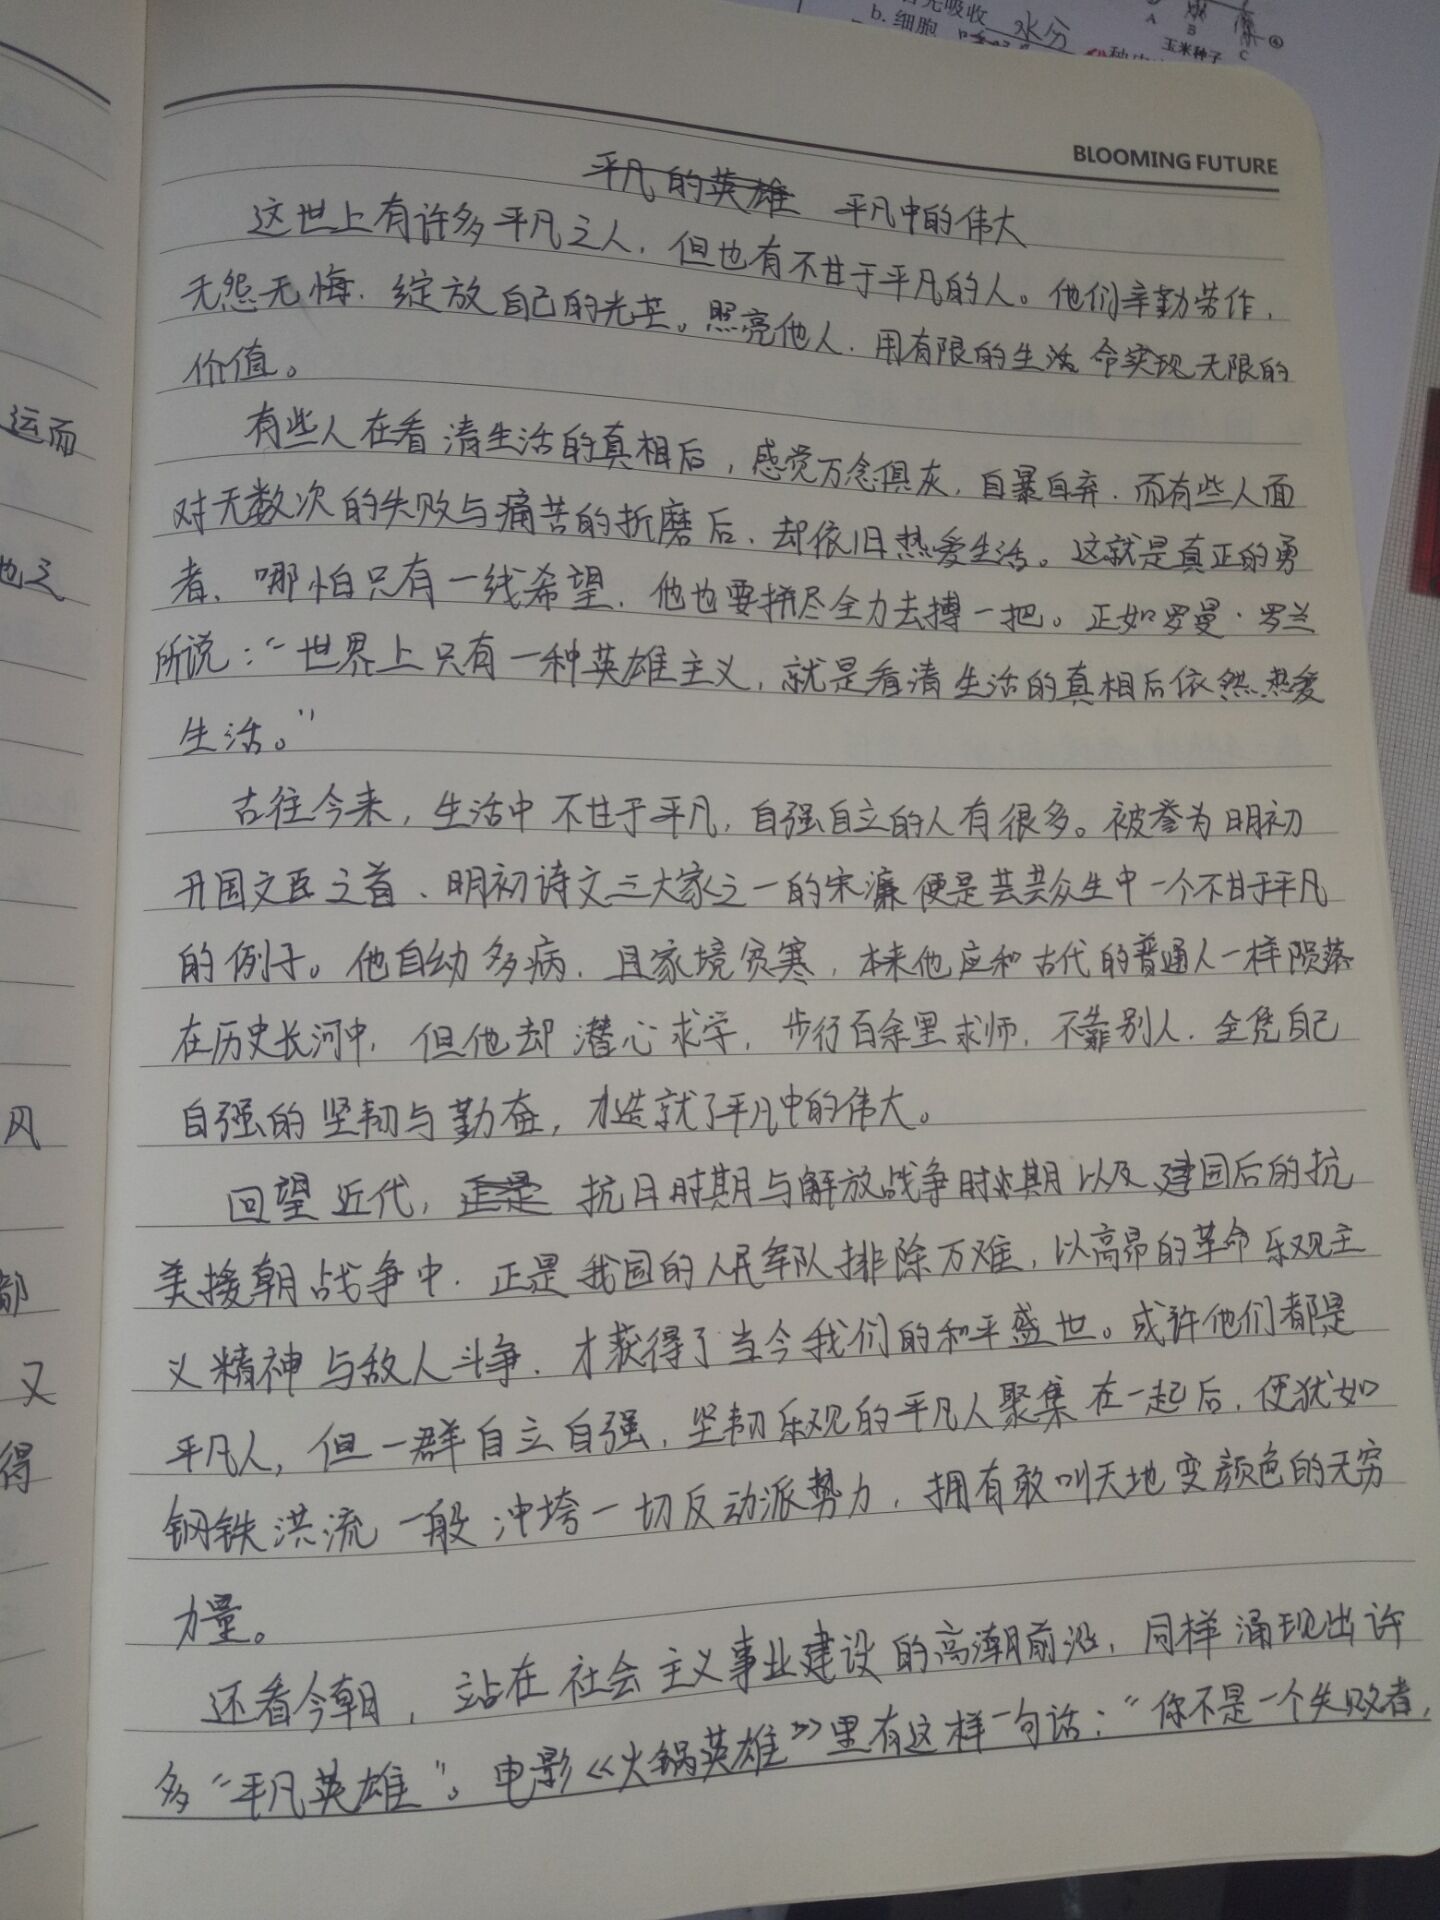 先吸收 水分
b. 细胞
A
B
C
玉米种子
BLOOMING FUTURE
平凡的英雄 平凡中的伟大
这世上有许多平凡之人，但也有不甘于平凡的人。他们辛勤劳作，
无怨无悔，绽放自己的光芒。照亮他人，用有限的生活命实现无限的
价值。
有些人在看清生活的真相后，感觉万念俱灰，自暴自弃，而有些人面
对无数次的失败与痛苦的折磨后，却依旧热爱生活。这就是真正的勇
者，哪怕只有一线希望，他也要拼尽全力去搏一把。正如罗曼·罗兰
所说：“世界上只有一种英雄主义，就是看清生活的真相后依然热爱
生活。”
古往今来，生活中不甘于平凡，自强自立的人有很多。被誉为明初
开国文臣之首、明初诗文三大家之一的宋濂便是芸芸众生中一个不甘于平凡
的例子。他自幼多病，且家境贫寒，本来他应和古代的普通人一样陨落
在历史长河中，但他却潜心求学，步行百余里求师，不靠别人，全凭自己
自强的坚韧与勤奋，才造就了平凡中的伟大。
回望近代，正是 抗日时期与解放战争时期以及建国后的抗
美援朝战争中，正是我国的人民军队排除万难，以高昂的革命乐观主
义精神与敌人斗争，才获得了当今我们的和平盛世。或许他们都是
平凡人，但一群自立自强，坚韧乐观的平凡人聚集在一起后，便犹如
钢铁洪流一般冲垮一切反动派势力，拥有敢叫天地变颜色的无穷
力量。
还看今朝，站在社会主义事业建设的高潮前沿，同样涌现出许
多“平凡英雄”。电影《火锅英雄》里有这样一句话：“你不是一个失败者，
运而
也之
风
部
又
得